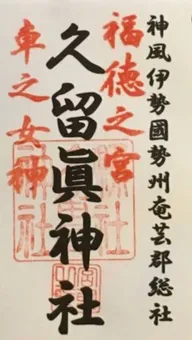 神風伊勢國勢州奄芸郡総社
福徳之宮
久留眞神社
車之女神